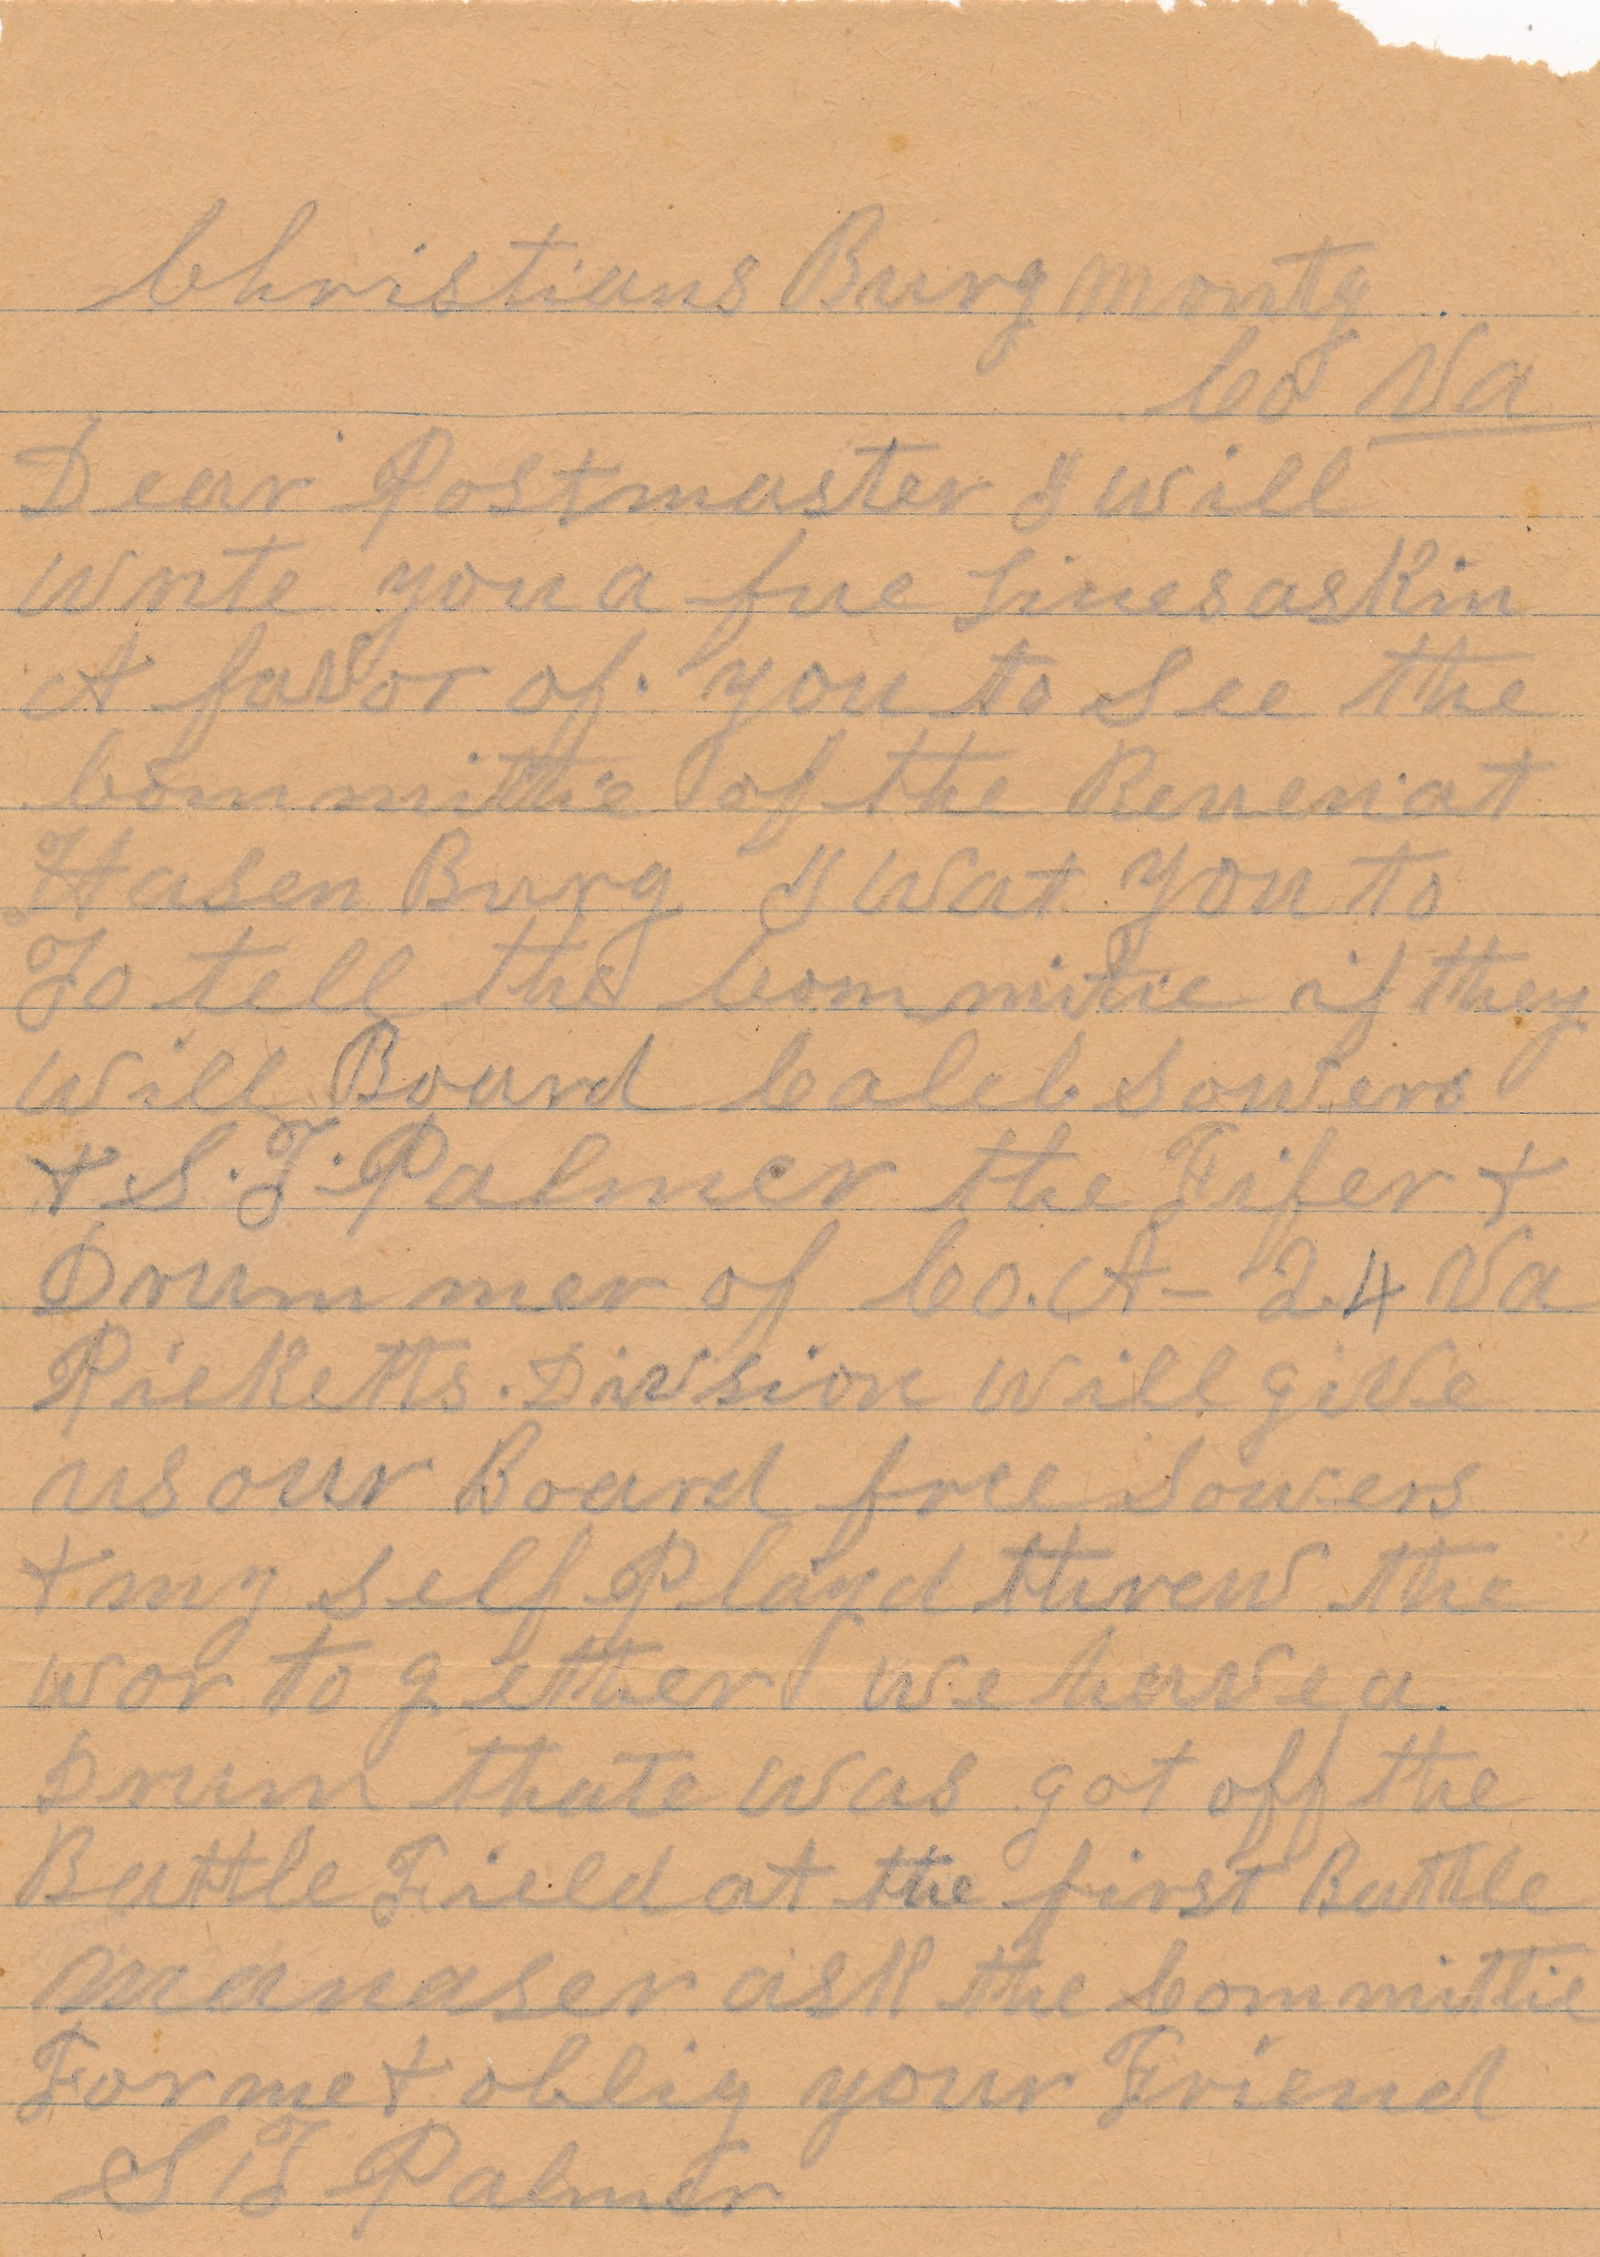 Christians Burg Montg
Co Va
Dear Postmaster I will
write you a fue Lines askin
A favor of you to See the
Committie of the Renen at
Hasen Burg I Wat you to
To tell the Committie if they
will Board Caleb Sowers
& S. T. Palmer the Fifer &
Drummer of Co. A - 24 Va
Picketts Divsion will give
us our Board free Sowers
& my self Playd threw the
wor to gether we have a
Drum thate was got off the
Battle Field at the first Battle
Manaser ask the Committie
For me & oblig your Friend
S T Palmer